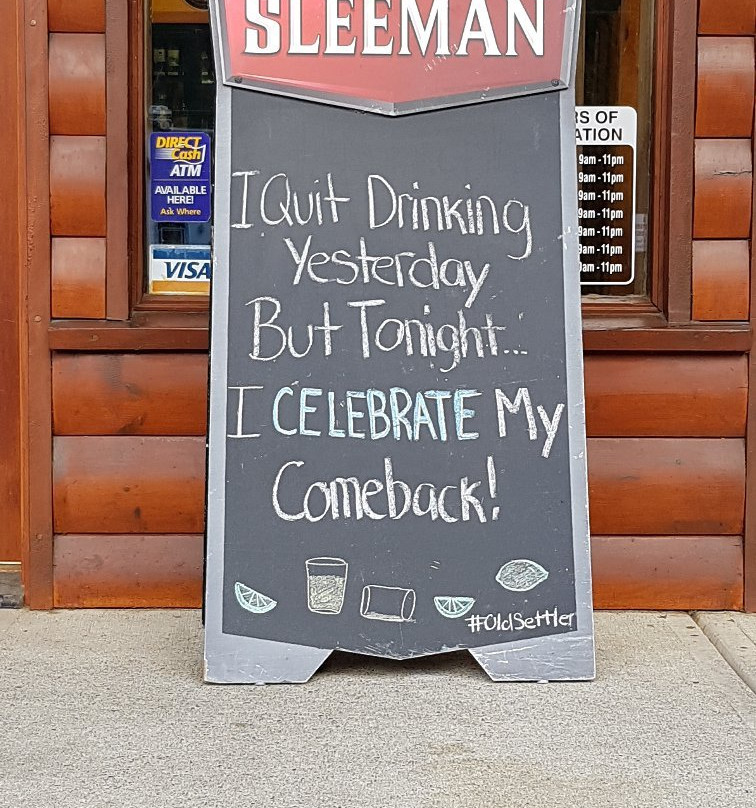 SLEEMAN
I Quit Drinking
Yesterday
But Tonight...
I CELEBRATE My
Comeback!
#OldSettler
DIRECT
Cash
ATM
AVAILABLE
HERE!
Ask Where
VISA
RS OF
ATION
9am - 11pm
9am - 11pm
9am - 11pm
9am - 11pm
9am - 11pm
9am - 11pm
9am - 11pm